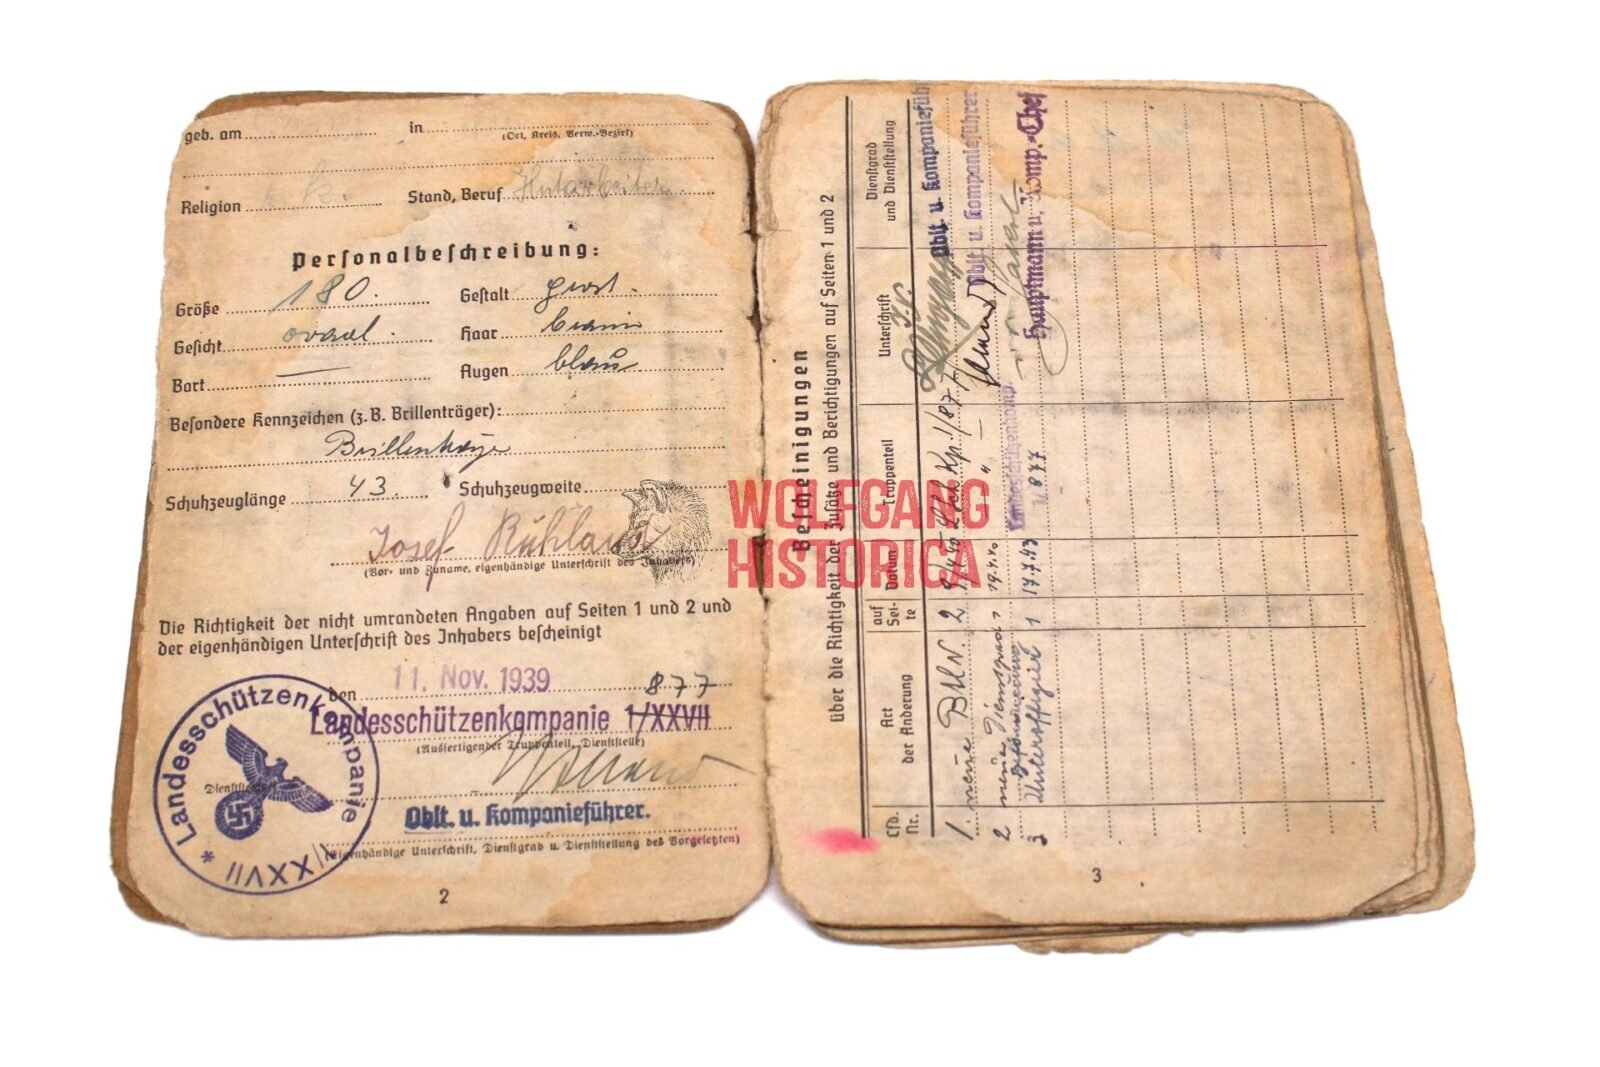 geb. am in
(Ort, Kreis, Verw.-Bezirk)
Religion k. Stand, Beruf Hutarbeiter
Personalbeschreibung:
Größe 180. Gestalt
Gesicht oval. Haar braun
Bart — Augen blau
Besondere Kennzeichen (z. B. Brillenträger):
Brillenträger
Schuhzeuglänge 43. Schuhzeugweite
Josef Rühland
(Vor- und Zuname, eigenhändige Unterschrift des Inhabers)
Die Richtigkeit der nicht umrandeten Angaben auf Seiten 1 und 2 und
der eigenhändigen Unterschrift des Inhabers bescheinigt
den 11. Nov. 1939 877
Landesschützenkompanie 1/XXVII
(Ausfertigender Truppenteil, Dienststelle)
Oblt. u. Kompanieführer.
(Eigenhändige Unterschrift, Dienstgrad u. Dienststellung des Vorgesetzten)
* Landesschützenkompanie 1/XXVII
2
WOLFGANG
HISTORICA
Bescheinigungen
über die Richtigkeit der Zusätze und Berichtigungen auf Seiten 1 und 2
Lfd. Nr. Art der Änderung auf Sei- te Datum Truppenteil Unterschrift Dienstgrad und Dienststellung
1. neue 2 9/4.40 1/877 Oblt. u. Kompanieführ
2 neue Dienstgrad 1 19.4.40 " — Oblt. u. Kompanieführer.
3 Unteroffizier 1 17.7.43 Landesschützenkomp. 1/877 Hauptmann u. Komp.-Chef
3